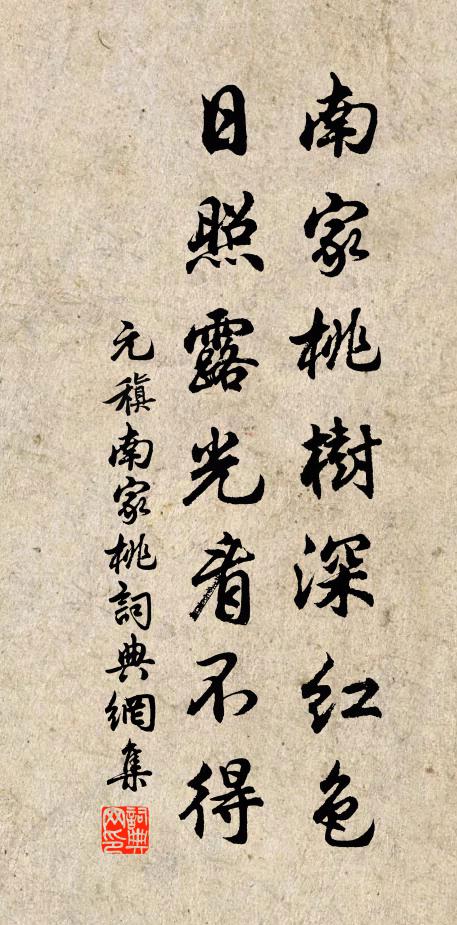 南家桃樹深紅色
日照露光看不得
元稹南家桃詞典網集
詞典網印